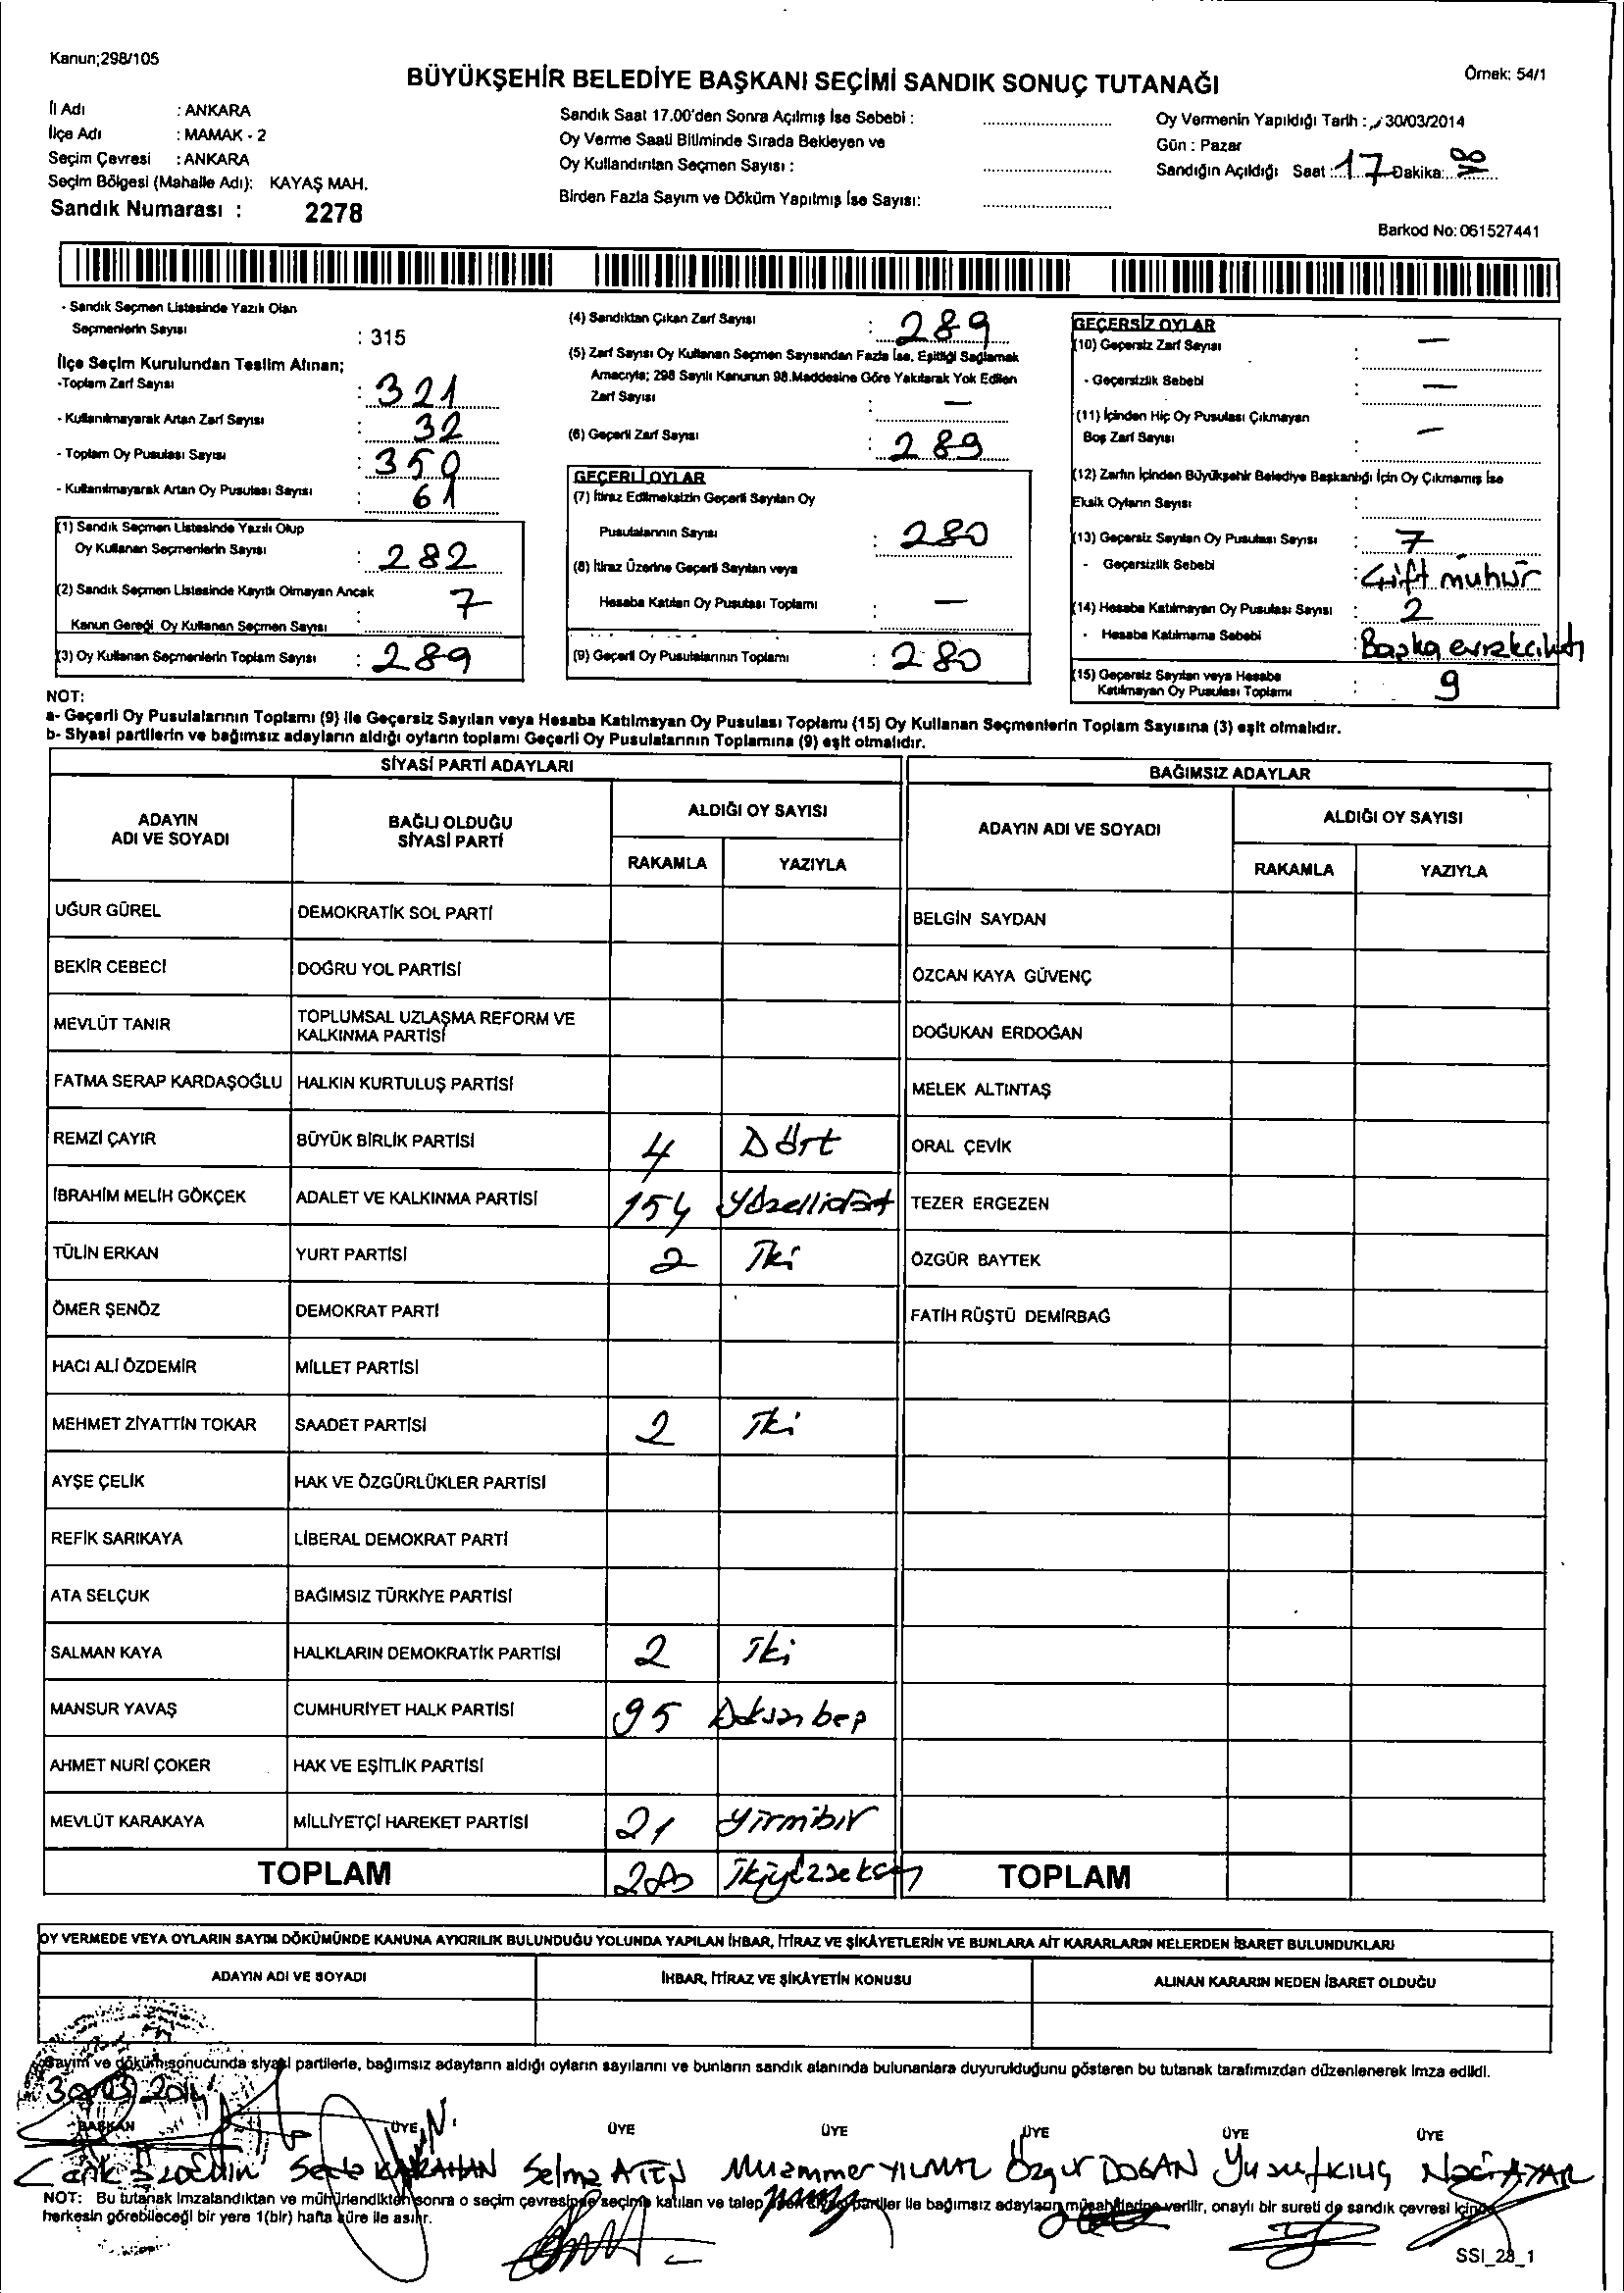 Kanun;298/105
BÜYÜKŞEHİR BELEDİYE BAŞKANI SEÇİMİ SANDIK SONUÇ TUTANAĞI
Örnek: 54/1
İl Adı : ANKARA
İlçe Adı : MAMAK - 2
Seçim Çevresi : ANKARA
Seçim Bölgesi (Mahalle Adı): KAYAŞ MAH.
Sandık Numarası : 2278
Sandık Saat 17.00'den Sonra Açılmış İse Sebebi :
Oy Verme Saati Bitiminde Sırada Bekleyen ve
Oy Kullandırılan Seçmen Sayısı :
Birden Fazla Sayım ve Döküm Yapılmış İse Sayısı:
Oy Vermenin Yapıldığı Tarih : 30/03/2014
Gün : Pazar
Sandığın Açıldığı Saat : 17 Dakika:
Barkod No: 061527441
- Sandık Seçmen Listesinde Yazılı Olan
Seçmenlerin Sayısı : 315
İlçe Seçim Kurulundan Teslim Alınan;
-Toplam Zarf Sayısı : 321
- Kullanılmayarak Artan Zarf Sayısı : 32
- Toplam Oy Pusulası Sayısı : 350
- Kullanılmayarak Artan Oy Pusulası Sayısı : 61
(1) Sandık Seçmen Listesinde Yazılı Olup
Oy Kullanan Seçmenlerin Sayısı : 282
(2) Sandık Seçmen Listesinde Kayıtlı Olmayan Ancak
Kanun Gereği Oy Kullanan Seçmen Sayısı : 7
(3) Oy Kullanan Seçmenlerin Toplam Sayısı : 289
(4) Sandıktan Çıkan Zarf Sayısı : 289
(5) Zarf Sayısı Oy Kullanan Seçmen Sayısından Fazla İse, Eşitliği Sağlamak
Amacıyla; 298 Sayılı Kanunun 98.Maddesine Göre Yakılarak Yok Edilen
Zarf Sayısı : —
(6) Geçerli Zarf Sayısı : 289
GEÇERLİ OYLAR
(7) İtiraz Edilmeksizin Geçerli Sayılan Oy
Pusulalarının Sayısı : 280
(8) İtiraz Üzerine Geçerli Sayılan veya
Hesaba Katılan Oy Pusulası Toplamı : —
(9) Geçerli Oy Pusulalarının Toplamı : 280
GEÇERSİZ OYLAR
(10) Geçersiz Zarf Sayısı : —
- Geçersizlik Sebebi : —
(11) İçinden Hiç Oy Pusulası Çıkmayan
Boş Zarf Sayısı : —
(12) Zarfın İçinden Büyükşehir Belediye Başkanlığı İçin Oy Çıkmamış İse
Eksik Oyların Sayısı :
(13) Geçersiz Sayılan Oy Pusulası Sayısı : 7
- Geçersizlik Sebebi : Çift mühür
(14) Hesaba Katılmayan Oy Pusulası Sayısı : 2
- Hesaba Katılmama Sebebi : Başka
(15) Geçersiz Sayılan veya Hesaba
Katılmayan Oy Pusulası Toplamı : 9
NOT:
a- Geçerli Oy Pusulalarının Toplamı (9) ile Geçersiz Sayılan veya Hesaba Katılmayan Oy Pusulası Toplamı (15) Oy Kullanan Seçmenlerin Toplam Sayısına (3) eşit olmalıdır.
b- Siyasi partilerin ve bağımsız adayların aldığı oyların toplamı Geçerli Oy Pusulalarının Toplamına (9) eşit olmalıdır.
SİYASİ PARTİ ADAYLARI
BAĞIMSIZ ADAYLAR
ADAYIN ADI VE SOYADI
BAĞLI OLDUĞU SİYASİ PARTİ
ALDIĞI OY SAYISI
RAKAMLA YAZIYLA
ADAYIN ADI VE SOYADI
ALDIĞI OY SAYISI
RAKAMLA YAZIYLA
UĞUR GÜREL DEMOKRATİK SOL PARTİ BELGİN SAYDAN
BEKİR CEBECİ DOĞRU YOL PARTİSİ ÖZCAN KAYA GÜVENÇ
MEVLÜT TANIR TOPLUMSAL UZLAŞMA REFORM VE KALKINMA PARTİSİ DOĞUKAN ERDOĞAN
FATMA SERAP KARDAŞOĞLU HALKIN KURTULUŞ PARTİSİ MELEK ALTINTAŞ
REMZİ ÇAYIR BÜYÜK BİRLİK PARTİSİ 4 Dört ORAL ÇEVİK
İBRAHİM MELİH GÖKÇEK ADALET VE KALKINMA PARTİSİ 154 Yüzellidört TEZER ERGEZEN
TÜLİN ERKAN YURT PARTİSİ 2 İki ÖZGÜR BAYTEK
ÖMER ŞENÖZ DEMOKRAT PARTİ FATİH RÜŞTÜ DEMİRBAĞ
HACI ALİ ÖZDEMİR MİLLET PARTİSİ
MEHMET ZİYATTİN TOKAR SAADET PARTİSİ 2 İki
AYŞE ÇELİK HAK VE ÖZGÜRLÜKLER PARTİSİ
REFİK SARIKAYA LİBERAL DEMOKRAT PARTİ
ATA SELÇUK BAĞIMSIZ TÜRKİYE PARTİSİ
SALMAN KAYA HALKLARIN DEMOKRATİK PARTİSİ 2 İki
MANSUR YAVAŞ CUMHURİYET HALK PARTİSİ 95
AHMET NURİ ÇOKER HAK VE EŞİTLİK PARTİSİ
MEVLÜT KARAKAYA MİLLİYETÇİ HAREKET PARTİSİ 21 Yirmibir
TOPLAM 280 İkiyüzseksen TOPLAM
OY VERMEDE VEYA OYLARIN SAYIM DÖKÜMÜNDE KANUNA AYKIRILIK BULUNDUĞU YOLUNDA YAPILAN İHBAR, İTİRAZ VE ŞİKÂYETLERİN VE BUNLARA AİT KARARLARIN NELERDEN İBARET BULUNDUKLARI
ADAYIN ADI VE SOYADI İHBAR, İTİRAZ VE ŞİKÂYETİN KONUSU ALINAN KARARIN NEDEN İBARET OLDUĞU
Sayım ve döküm sonucunda siyasi partilerle, bağımsız adayların aldığı oyların sayılarını ve bunların sandık alanında bulunanlara duyurulduğunu gösteren bu tutanak tarafımızdan düzenlenerek imza edildi.
30/03/2014
BAŞKAN ÜYE ÜYE ÜYE ÜYE ÜYE ÜYE
KARAHAN Selma Muammer YILMAZ Özgür DOĞAN Yusuf KILIÇ Naci AYAR
NOT: Bu tutanak imzalandıktan ve mühürlendikten sonra o seçim çevresinde seçime katılan ve talep eden siyasi partiler ile bağımsız adayların müşahitlerine verilir, onaylı bir sureti de sandık çevresi içinde
herkesin görebileceği bir yere 1(bir) hafta süre ile asılır.
SSI_23_1